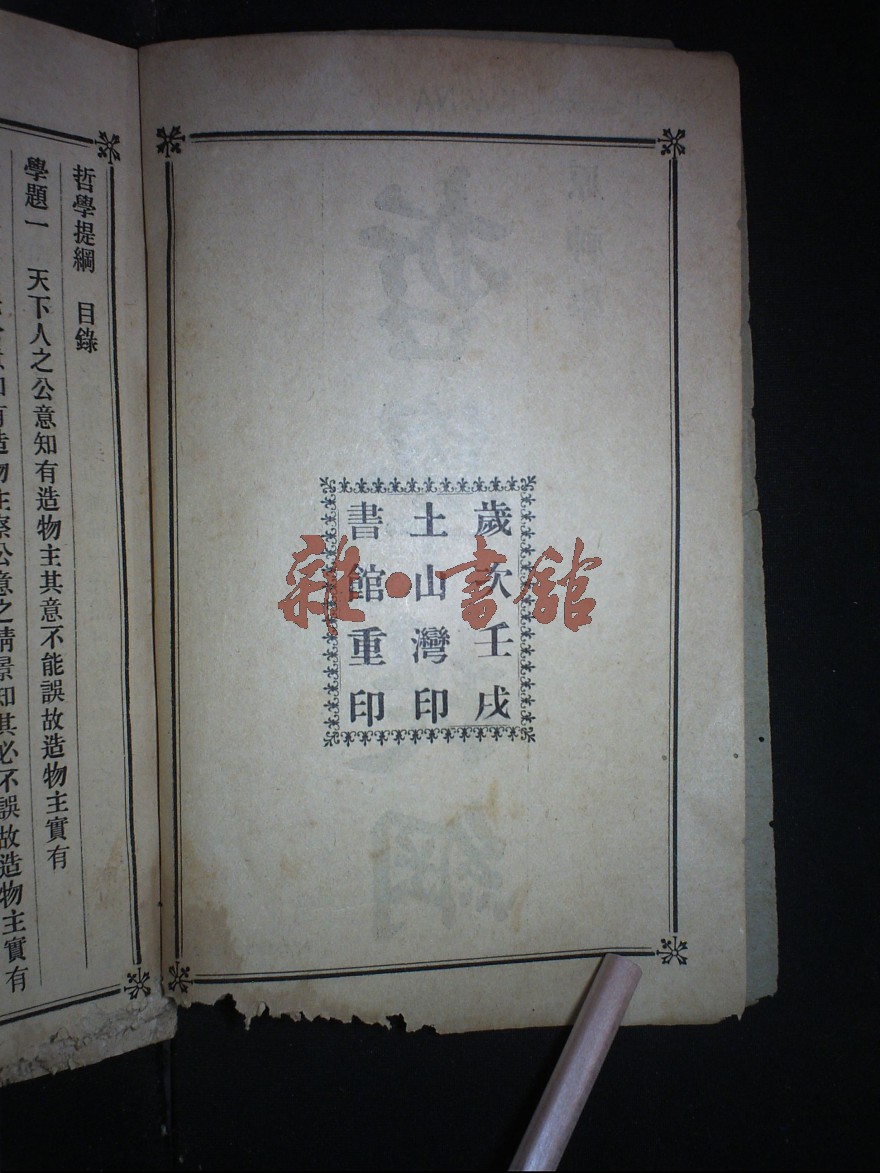 歲次壬戌
土山灣印
書館重印
雜·書館
哲學提綱 目錄
學題一 天下人之公意知有造物主其意不能誤故造物主實有
造物主察公意之情景知其必不誤故造物主實有